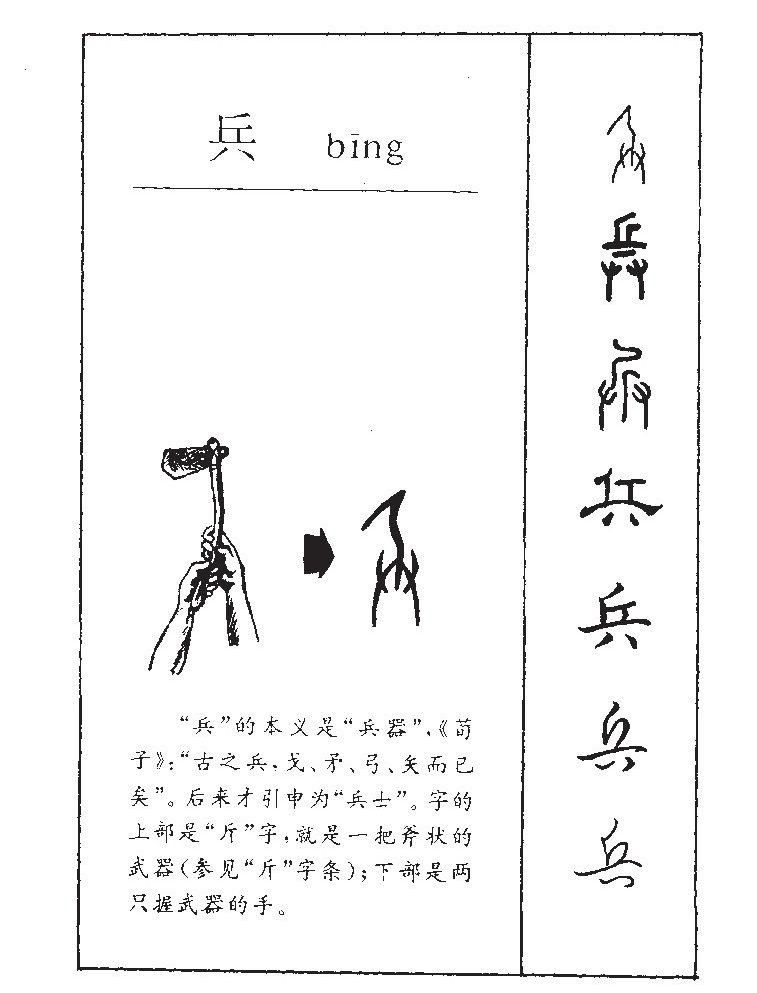 兵 bīng
“兵”的本义是“兵器”，《荀
子》：“古之兵，戈、矛、弓、矢而已
矣”。后来才引申为“兵士”。字的
上部是“斤”字，就是一把斧状的
武器（参见“斤”字条）；下部是两
只握武器的手。
兵
兵
兵
兵